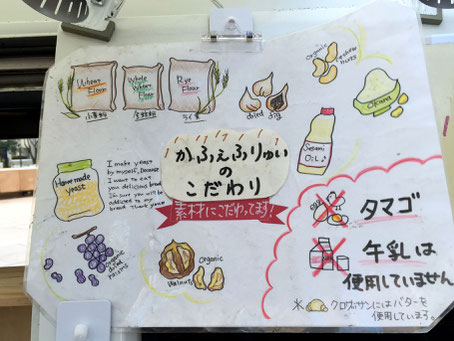 Wheat
Flour
小麦粉
Whole
Wheat
Flour
全粒粉
Rye
Flour
ライ麦
dried fig
organic
cashew
nuts
Okara
Sesami
Oil♪
Home made
yeast
I make yeast
by myself, because
I want to eat
you delicious bread
I'm sure you will be
addicted to my
bread. Thank you!!
かふぇふりゅい
の
こだわり
素材にこだわってます!
タマゴ
牛乳は
使用していません
※クロワッサンにはバターを
使用しています。
organic
dried
raisins
organic
Walnuts